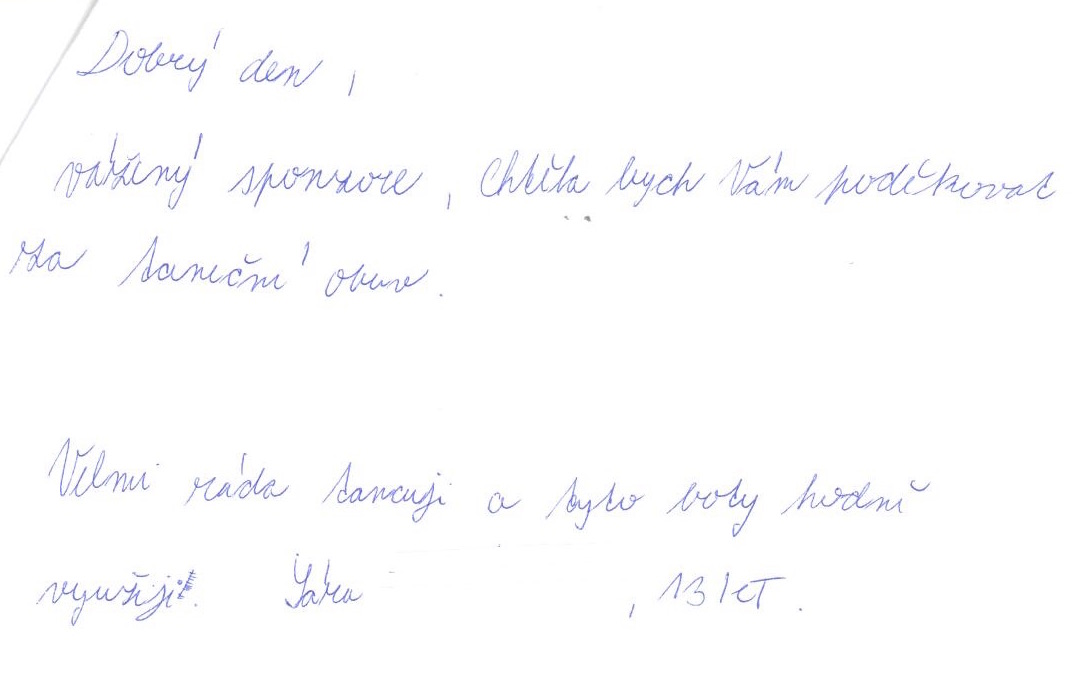 Dobrý den,
vážený sponzore, Chtěla bych Vám poděkovat
za taneční obuv.
Velmi ráda tancuji a tyto boty hodně
využiji. Sára , 13 let.